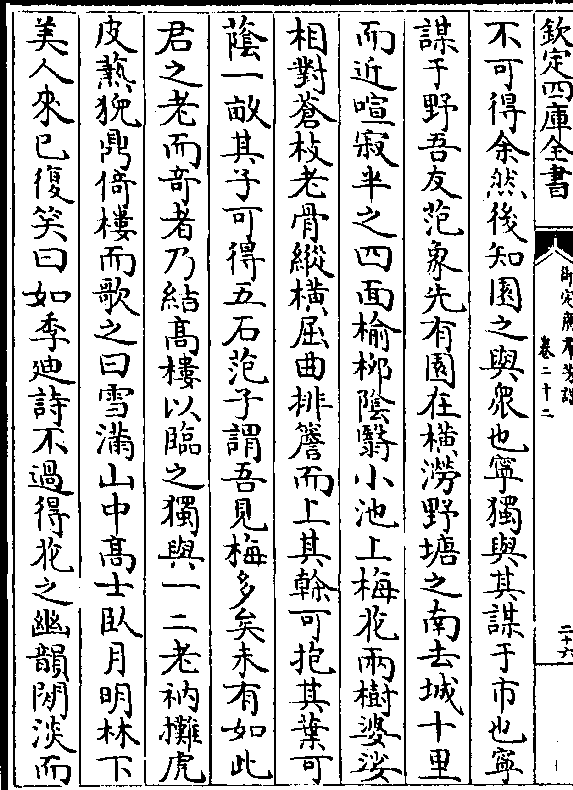 欽定四庫全書
御定廣群芳譜 卷二十二
二十六
不可得余然後知園之與衆也寧獨與其謀于市也寧
謀于野吾友范象先有園在横澇野塘之南去城十里
而近喧寂半之四面榆栁陰翳小池上梅花兩樹婆娑
相對蒼枝老骨縱横屈曲排簷而上其榦可抱其葉可
蔭一畝其子可得五石范子謂吾見梅多矣未有如此
君之老而奇者乃結髙樓以臨之獨與一二老衲攤虎
皮爇猊鼎倚樓而歌之曰雪滿山中髙士臥月明林下
美人來已復笑曰如季迪詩不過得花之幽韻閒淡而